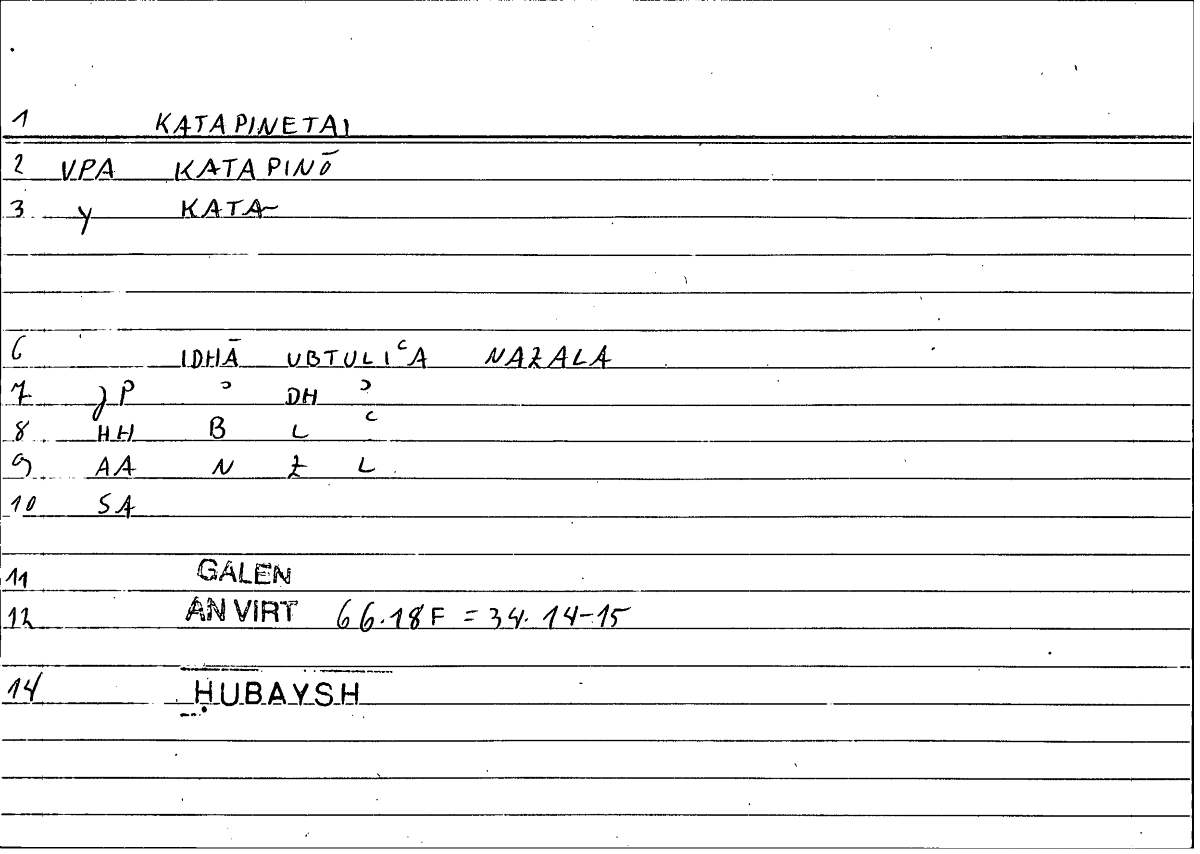 1 KATAPINETAI
2 VPA KATAPINŌ
3 y KATA-
6 IDHĀ UBTULIʿA NAZALA
7 JP ʾ DH ʾ
8 HH B L ʿ
9 AA N Z L
10 SA
11 GALEN
12 AN VIRT 66.18F = 34.14-15
14 ḤUBAYSH